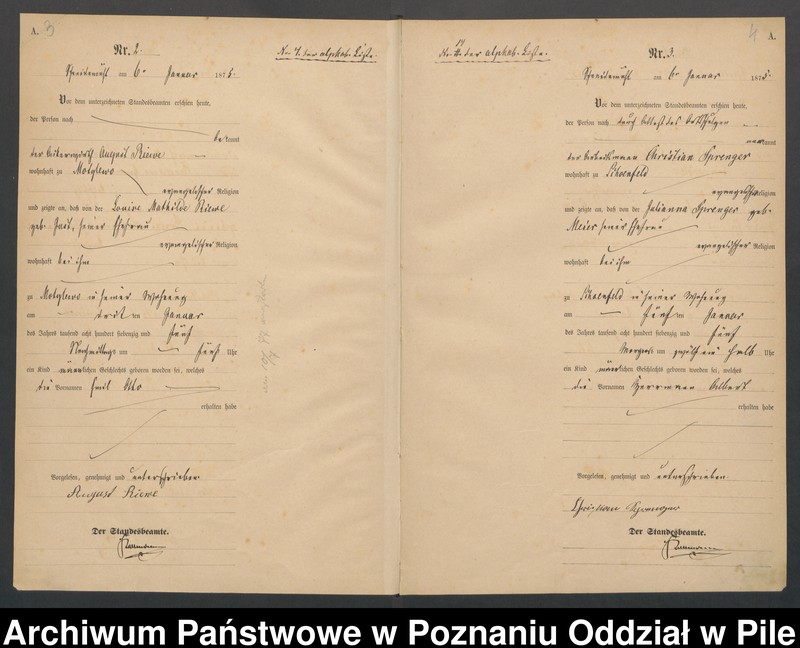 A. 3
Nr. 2.
No 4. der alphab. Liste.
am 6. Januar 1875.
Vor dem unterzeichneten Standesbeamten erschien heute,
der Person nach
bekannt
der August Riewe
wohnhaft zu
evangelischer Religion
und zeigte an, daß von der Louise Mathilde Riewe
geb. seiner Ehefrau
evangelischer Religion
wohnhaft bei ihm
zu in seiner Wohnung
am drei ten Januar
des Jahres tausend acht hundert siebenzig und fünf
Nachmittags um fünf Uhr
ein Kind männlichen Geschlechts geboren worden sei, welches
die Vornamen Emil Otto
erhalten habe
Vorgelesen, genehmigt und unterschrieben
August Riewe
Der Standesbeamte.
4 A.
der alphab. Liste.
Nr. 3.
am 6. Januar 1875.
Vor dem unterzeichneten Standesbeamten erschien heute,
der Person nach durch
kannt
der Christian Sprenger
wohnhaft zu Schoenfeld
evangelischer Religion
und zeigte an, daß von der Julianna Sprenger geb.
Meier seiner Ehefrau
evangelischer Religion
wohnhaft bei ihm
zu Schoenfeld in seiner Wohnung
am fünf ten Januar
des Jahres tausend acht hundert siebenzig und fünf
Morgens um zwölf ein halb Uhr
ein Kind männlichen Geschlechts geboren worden sei, welches
die Vornamen Herrmann Albert
erhalten habe
Vorgelesen, genehmigt und unterschrieben
Christian Sprenger
Der Standesbeamte.
Archiwum Państwowe w Poznaniu Oddział w Pile